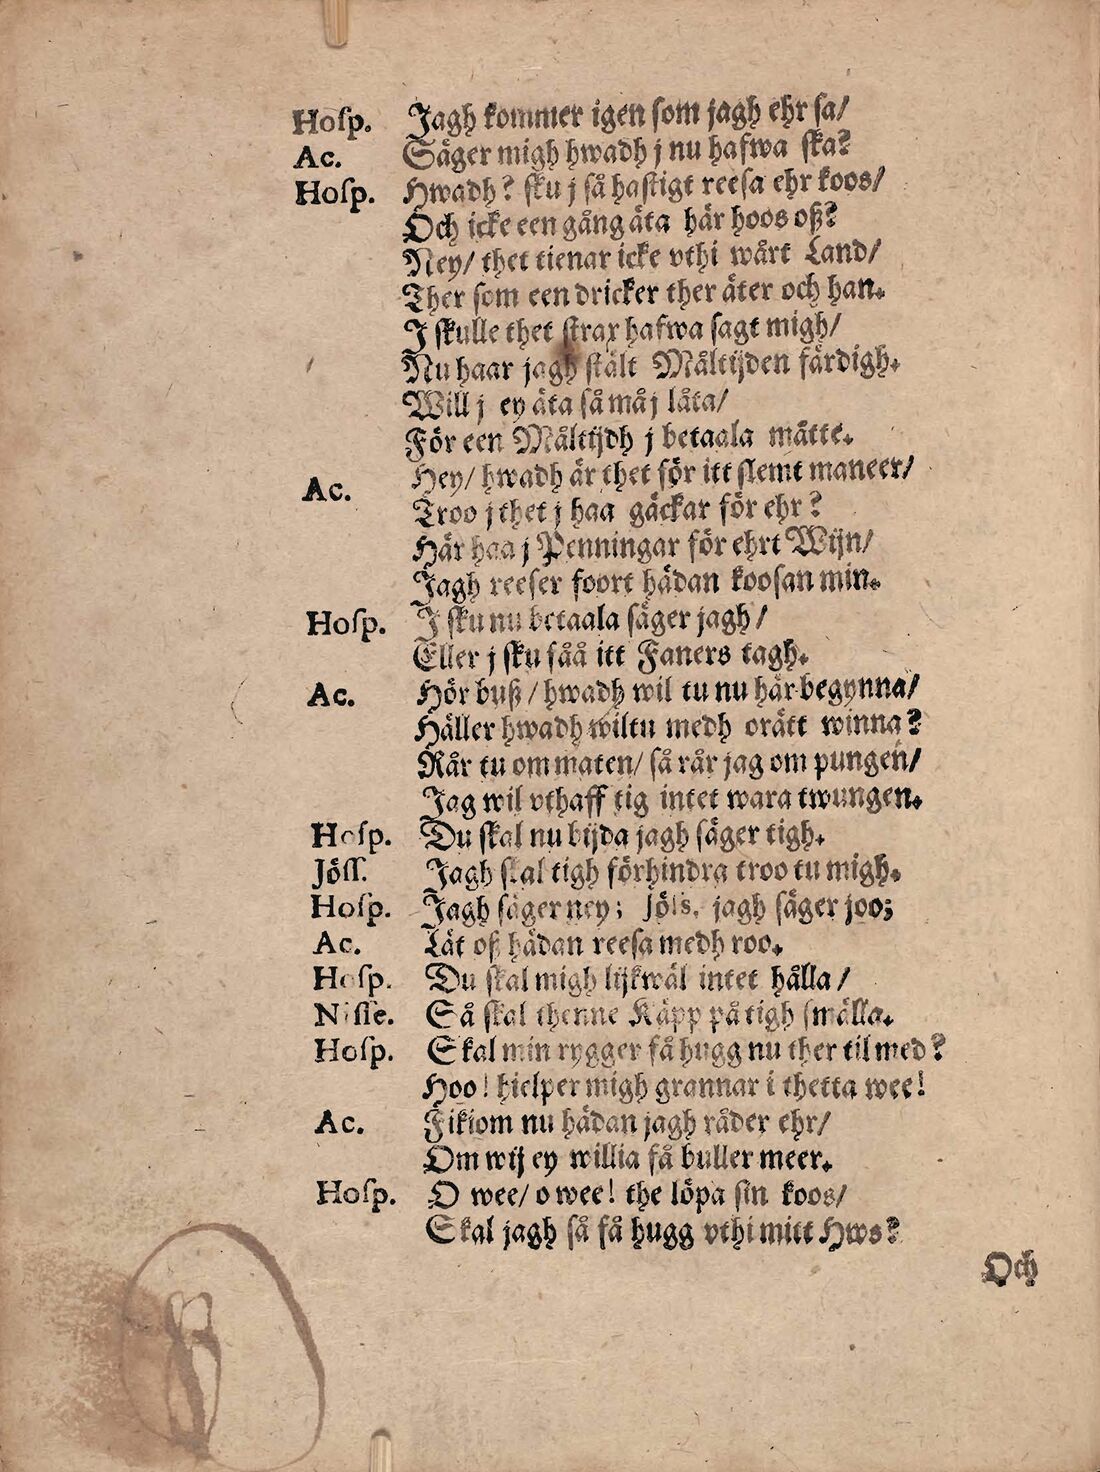 Hoſp. Jagh kommer igen ſom jagh ehr ſa/
Ac. Säger migh hwadh j nu hafwa ſka?
Hoſp. Hwadh? ſku j ſå haſtigt reeſa ehr koos/
Och icke een gång äta här hoos oß?
Ney/ thet tienar icke vthi wårt Land/
Ther ſom een dricker ther äter och han.
J ſkulle thet ſtrax hafwa ſagt migh/
Nu haar jagh ſtält Måltijden färdigh.
Will j ey äta ſå må j låta/
För een Måltijdh j betaala måtte.
Ac. Hey/ hwadh är thet för itt ſlemt maneer/
Troo j thet j haa gäckar för ehr?
Här haa j Penningar för ehrt Wijn/
Jagh reeſer foort hädan kooſan min.
Hoſp. J ſku nu betaala ſäger jagh/
Eller j ſku fåå itt Faners tagh.
Ac. Hör buß/ hwadh wil tu nu här begynna/
Häller hwadh wiltu medh orätt winna?
Rår tu om maten/ ſå rår jag om pungen/
Jag wil vthaff tig intet wara twungen.
Hoſp. Du ſkal nu bijda jagh ſäger tigh.
Jöſſ. Jagh ſkal tigh förhindra troo tu migh.
Hoſp. Jagh ſäger ney; Jöſs. jagh ſäger joo;
Ac. Låt oß hädan reeſa medh roo.
Hoſp. Du ſkal migh lijkwäl intet hålla/
Niſſe. Så ſkal thenne Käpp på tigh ſmälla.
Hoſp. Skal min rygger få hugg nu ther til med?
Hoo! hielper migh grannar i thetta wee!
Ac. Fikiom nu hädan jagh råder ehr/
Om wij ey willia få buller meer.
Hoſp. O wee/ o wee! the löpa ſin koos/
Skal jagh ſå få hugg vthi mitt Hws?
Och